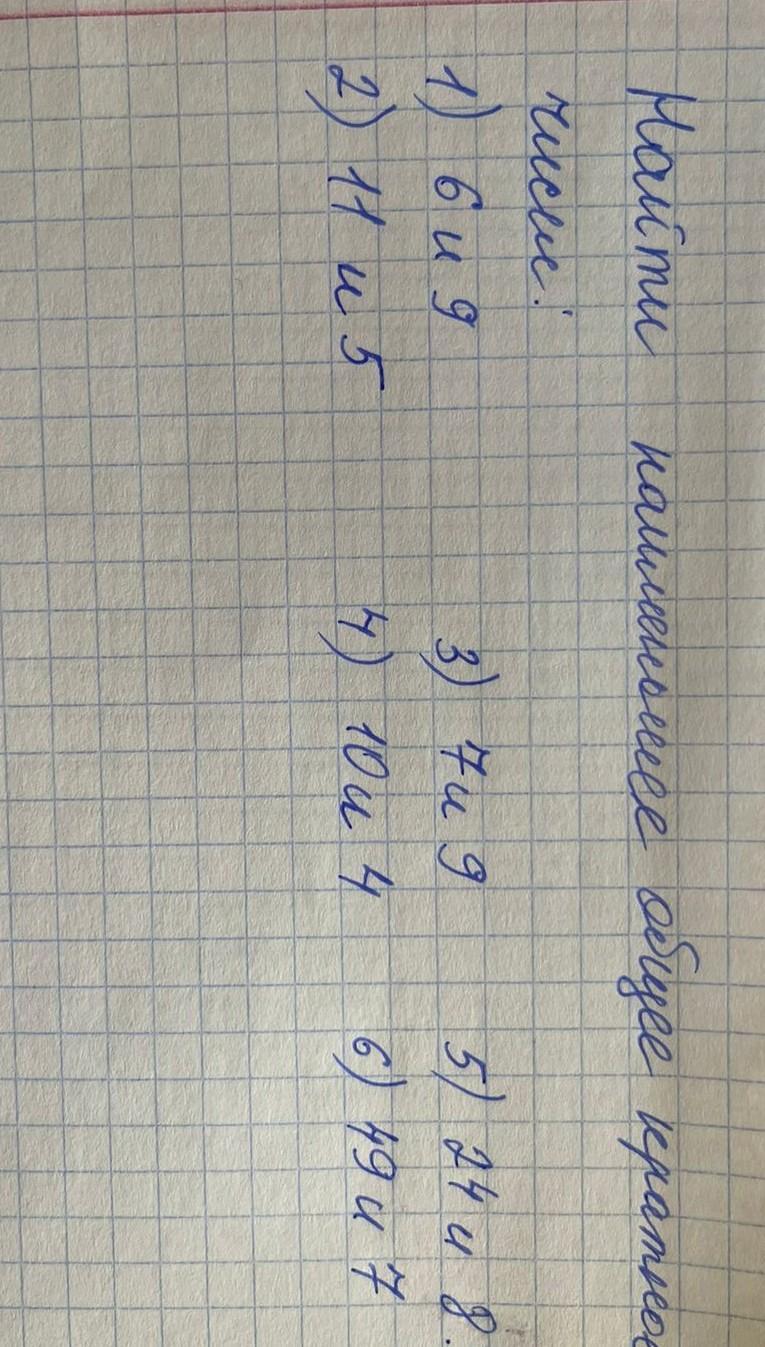 Найти наименьшее общее кратное
чисел:
1) 6 и 9 3) 7 и 9 5) 24 и 8.
2) 11 и 5 4) 10 и 4 6) 49 и 7